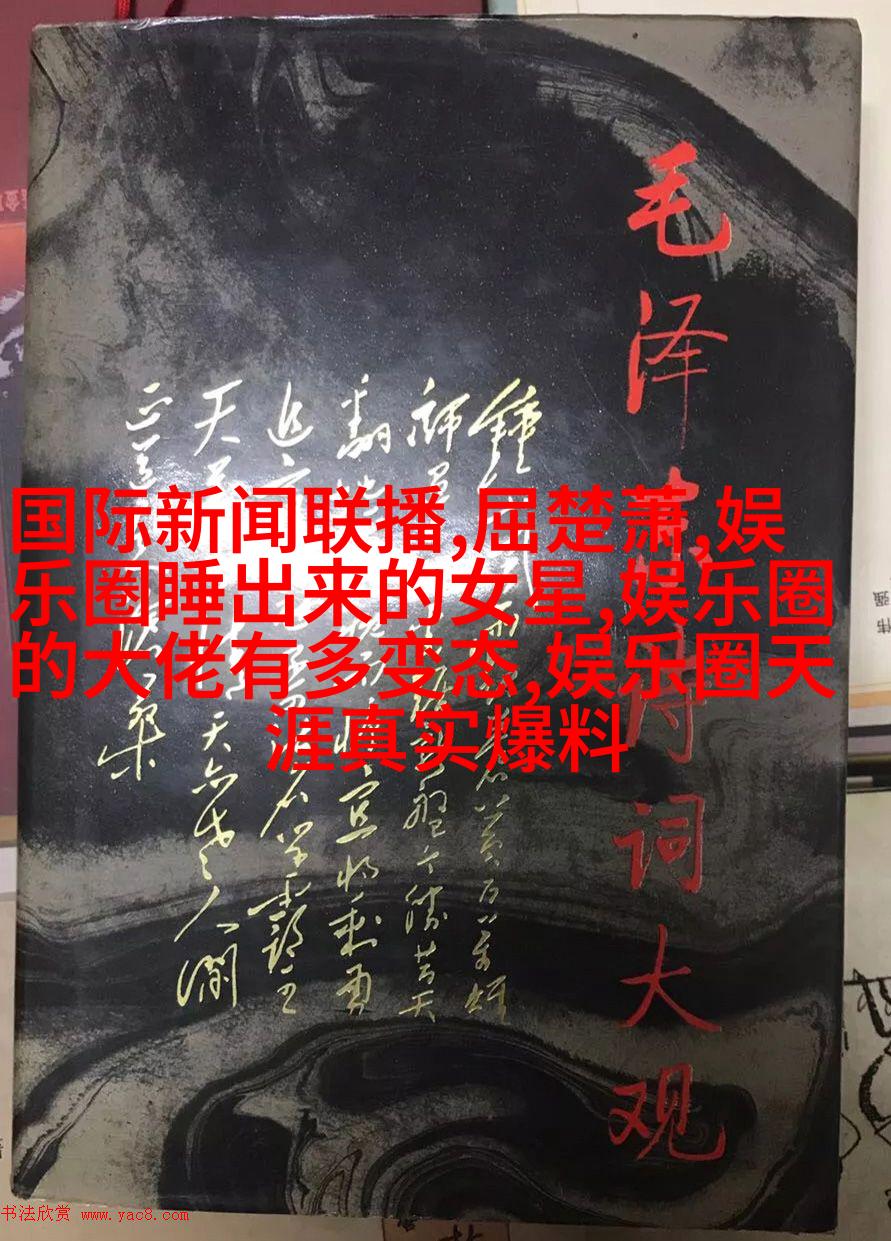 毛泽东诗词大观
鍾山风雨起苍黄百万雄
师过大江虎踞龙盘今胜昔天
翻地覆慨而慷宜将剩勇
追穷寇不可沽名学霸王
天若有情天亦老人间
正道是沧桑
国际新闻联播,屈楚萧,娱
乐圈睡出来的女星,娱乐圈
的大佬有多变态,娱乐圈天
涯真实爆料
书法欣赏 www.yac8.com